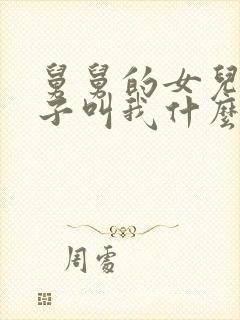 舅舅的女兒
子叫我什麼
周雪